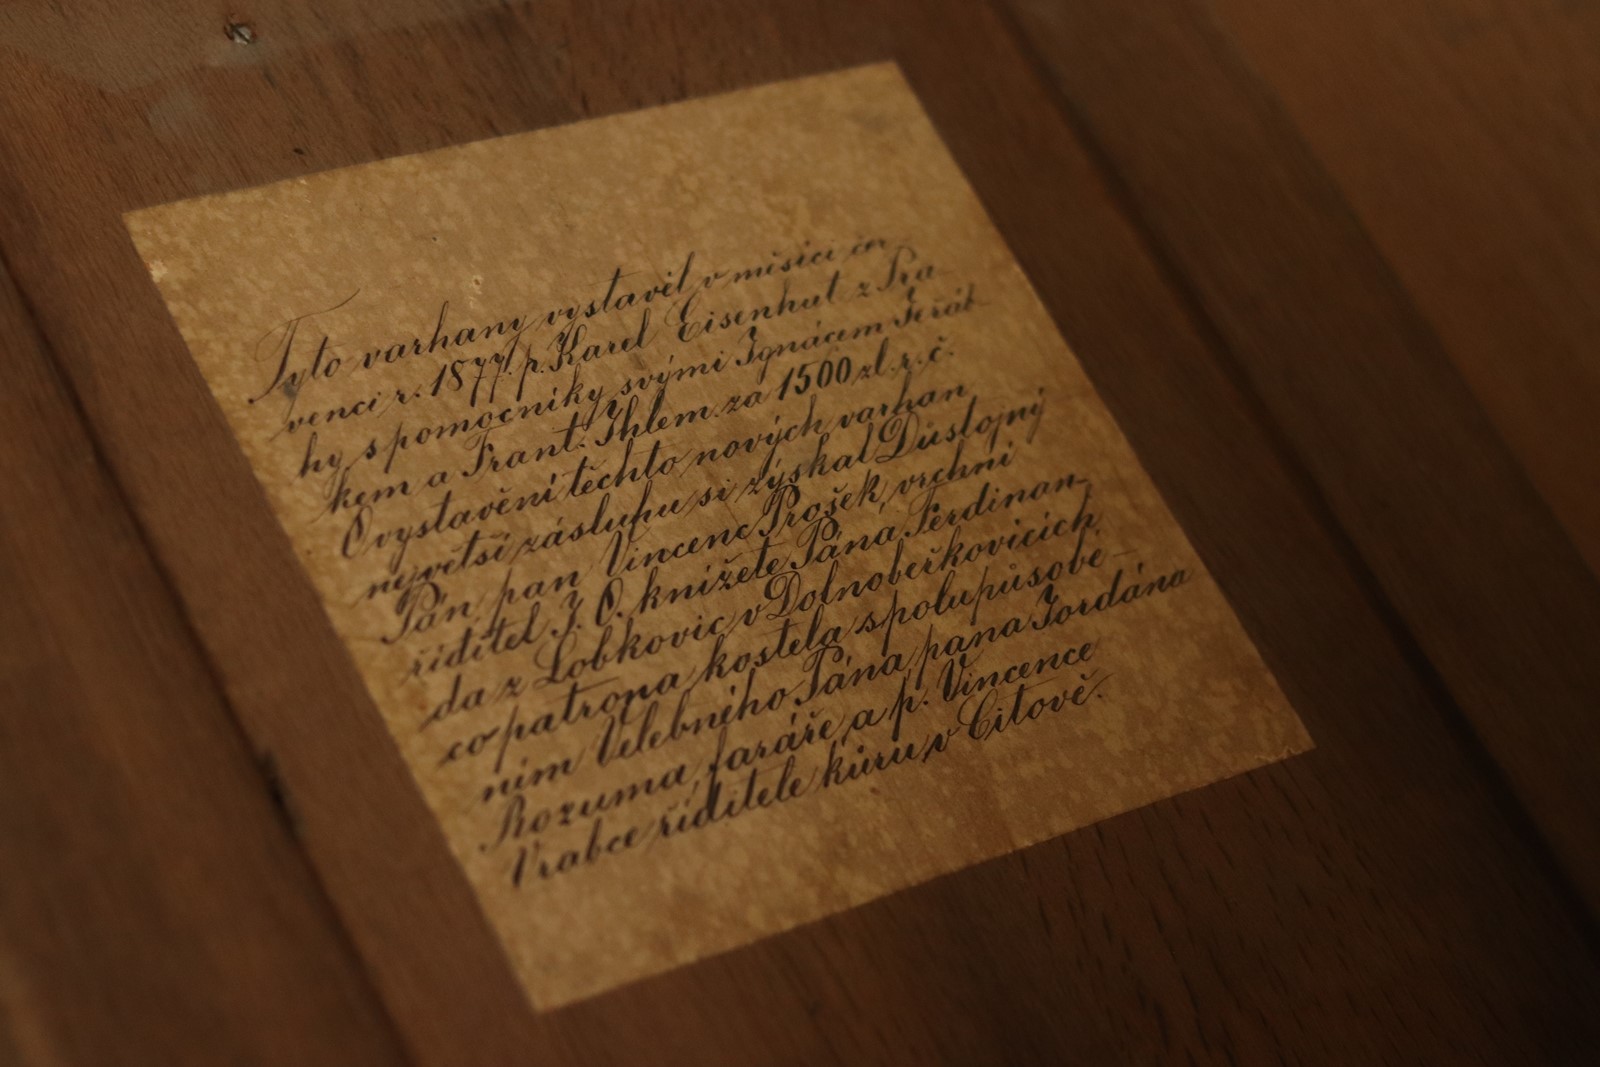 Tyto varhany vystavěl v měsíci čer
venci r. 1877. p. Karel Eisenhut z Pra
hy s pomocníky svými Ignácem Jeřáb
kem a Frant. Ihlem za 1500 zl. r. č.
O vystavění těchto nových varhan
největší zásluhu si zýskal Důstojný
Pán pan Vincenc Prošek, vrchní
řiditel J. O. knížete Pána Ferdinan-
da z Lobkovic v Dolnobeřkovicích
co patrona kostela spolupůsobe-
ním Velebného Pána pana Jordána
Rozuma, faráře a p. Vincence
Vrabce řiditele kůru v Citově.